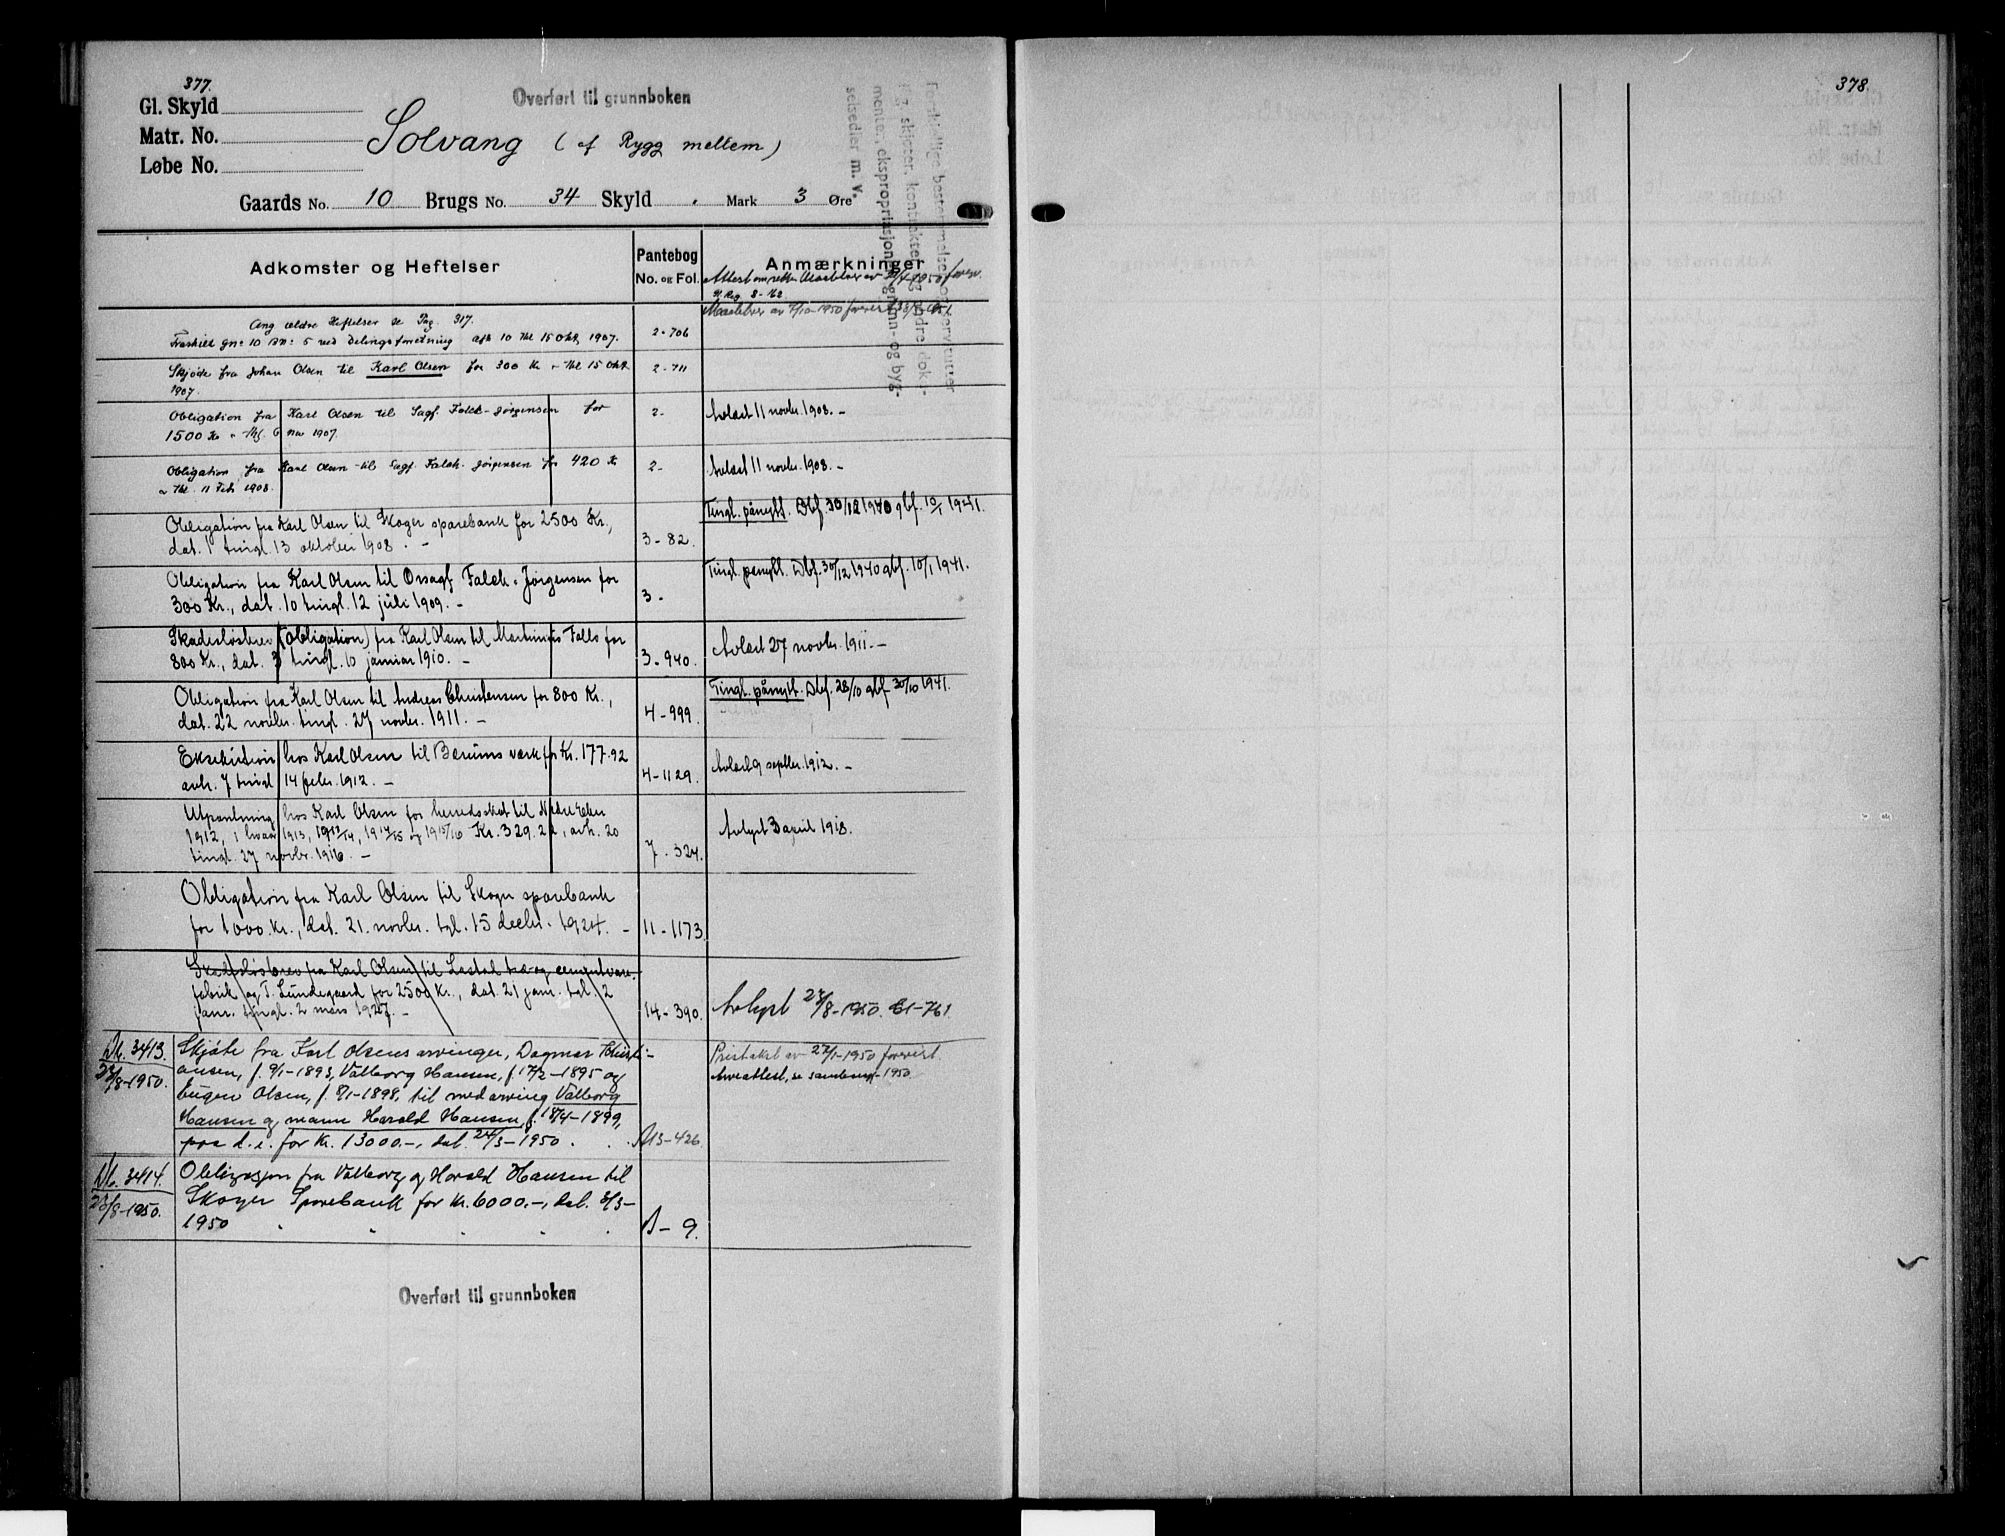 377.
Overført til grunnboken
Gl. Skyld
Matr. No.
Løbe No.
Solvang (af Rygg mellem)
Gaards No. 10 Brugs No. 34 Skyld . Mark 3 Øre
Forskjellige bestemmelser om servitutter
i f. g. skjøter, kontrakter og andre doku-
menter, ekspropriasjon, grunn- og byg-
selsedler m. v.
Adkomster og Heftelser
Pantebog
No. og Fol.
Anmærkninger
1950
8-162
Maalebrev av 1950
Ang ældre Heftelser se Pag. 317.
Fraskilt gn: 10 Bn: 5 ved Delingsforretning afh 10 thl 15 Okt. 1907.
2-706
Skjøde fra Johan Olsen til Karl Olsen for 300 Kr - thl 15 Okt
1907.
2-711
Obligation fra Karl Olsen til Sagf. Falck-Jørgensen for
1500 Kr 6 Nov 1907.
2-
Avlæst 11 novbr. 1908. -
Obligation fra Karl Olsen til Sagf. Falck-Jørgensen for 420 Kr
Thl. 11 Feb 1908.
2-
Avlæst 11 novbr. 1908. -
Obligation fra Karl Olsen til Skoger sparebank for 2500 Kr.,
dat. 1 tingl. 13 oktober 1908. -
3-82.
Tingl. pånytt. Dbf. 30/12 1940 gbf. 10/1 1941.
Obligation fra Karl Olsen til Orsagf. Falck-Jørgensen for
300 Kr., dat. 10 tingl. 12 juli 1909. -
3-
Tingl. pånytt. Dbf. 30/12 1940 gbf. 10/1 1941.
Skadesløsbrev (obligation) fra Karl Olsen til Martinius Falls for
800 Kr., dat. 3 tingl. 10 januar 1910. -
3-940.
Avlæst 27 novbr. 1911. -
Obligation fra Karl Olsen til Andreas Christensen for 800 Kr.,
dat. 22 novbr. tingl. 27 novbr. 1911. -
4-999.
Tingl. pånytt. Dbf. 28/10 gbf. 30/10 1941.
Eksekution hos Karl Olsen til Bærums værk for Kr. 177.92
avh. 7 tingl 14 febr. 1912. -
4-1129.
Avlæst 9 septbr. 1912. -
Utpantning hos Karl Olsen for herredsskat til Nedre Eker
1912, 1 halvår 1913, 1913/14, 1914/15 og 1915/16 Kr. 329.22, avh. 20
tingl. 27 novbr. 1916. -
7-324.
Avlyst 3 april 1918.
Obligation fra Karl Olsen til Skoger sparebank
for 1000 kr., dat. 21. novbr. tgl. 15 decbr. 1924. -
11-1173
Skadesløsbrev fra Karl Olsen til Lestad træ- og cementvare-
fabrik og T. Lundegaard for 2500 Kr., dat. 21 jan. tgl. 2
tingl. 2 mars 1927. -
14-390.
Avlyst 23/8-1950. C1-761.
Db. 3413.
23/8-1950.
Skjøte fra Karl Olsens arvinger, Dagmar Christi-
ansen, f. 9/1-1893, Valborg Hansen, f. 17/2-1895 og
Eugen Olsen, f. 8/1-1898, til medarving Valborg
Hansen og mann Harald Hansen, f. 18/4-1899,
for Kr. 13000.-, dat. 24/3-1950.
A13-426.
Pristakst av 27/1-1950 forevist.
Arveattest, se samlemp. 1950.
Db. 3414.
23/8-1950.
Obligasjon fra Valborg og Harald Hansen til
Skoger Sparebank for kr. 6000.-, dat. 3/3-
1950
B-9.
Overført til grunnboken
378.